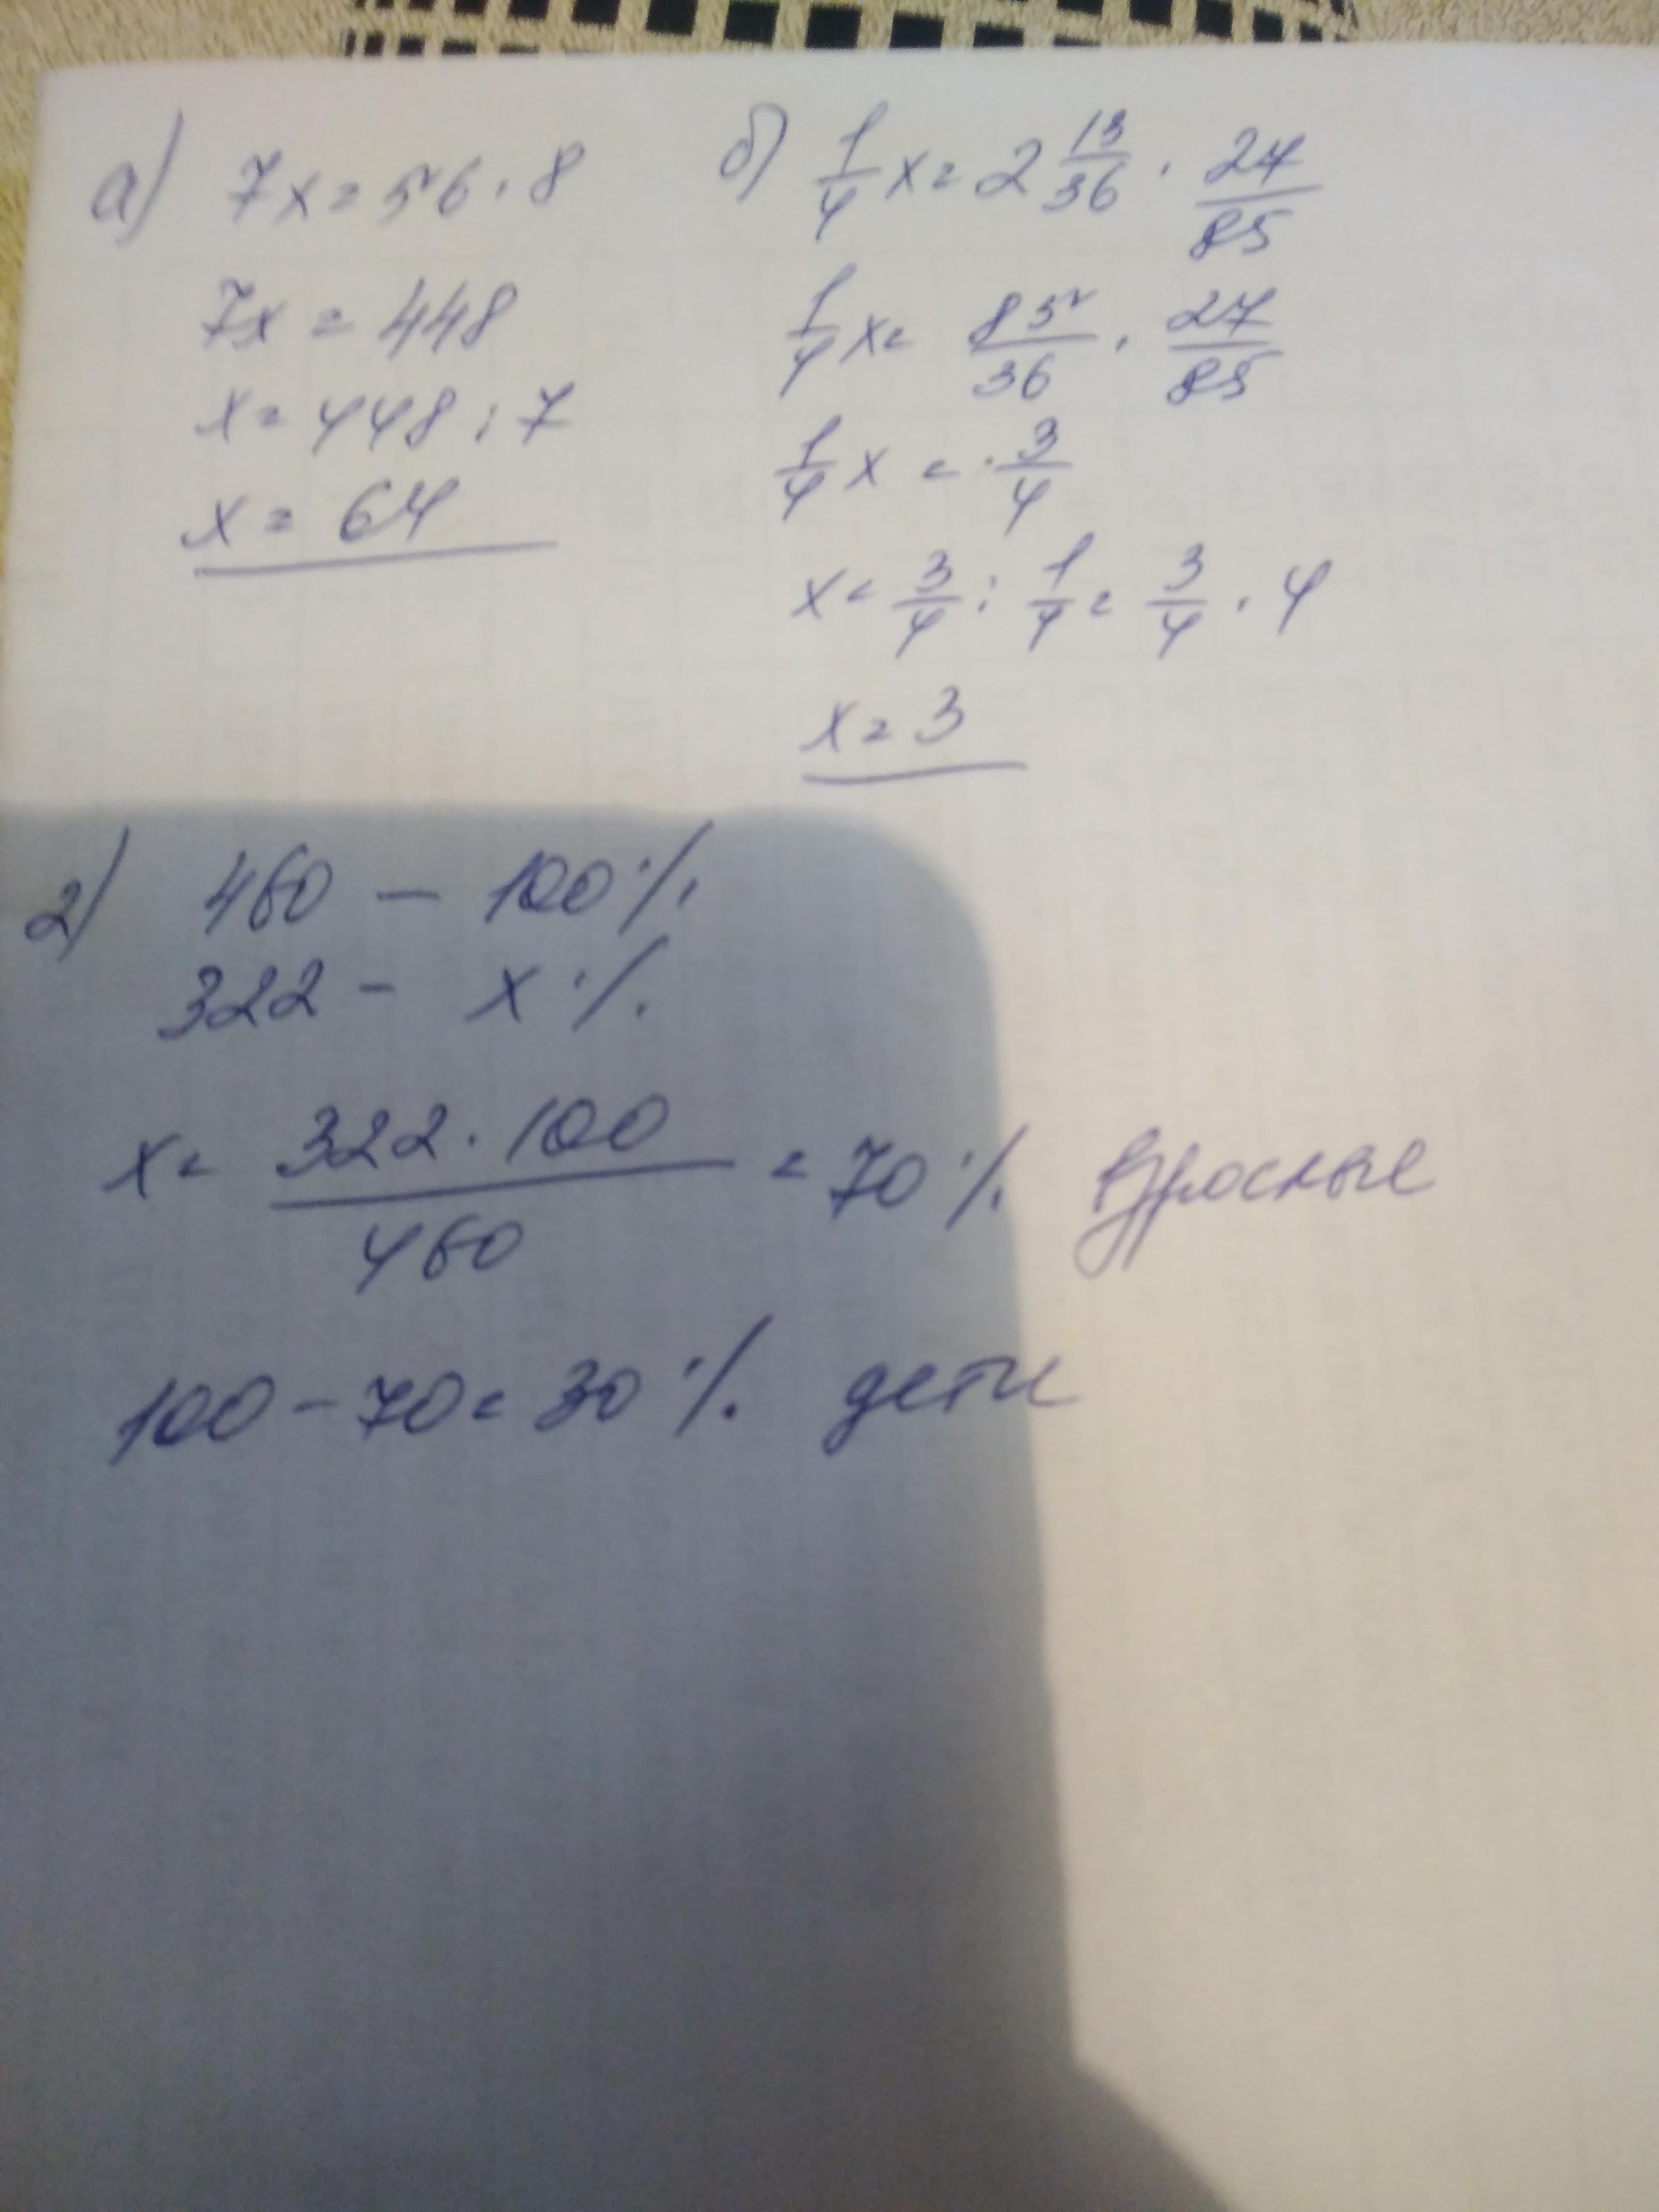 а) 7x = 56 · 8
7x = 448
x = 448 : 7
x = 64
б) 1/4 x = 2 13/36 · 27/85
1/4 x = 85/36 · 27/85
1/4 x = · 3/4
x = 3/4 : 1/4 = 3/4 · 4
x = 3
2) 460 – 100%
322 – x%
x = 322 · 100 / 460 = 70% взрослые
100 – 70 = 30% дети